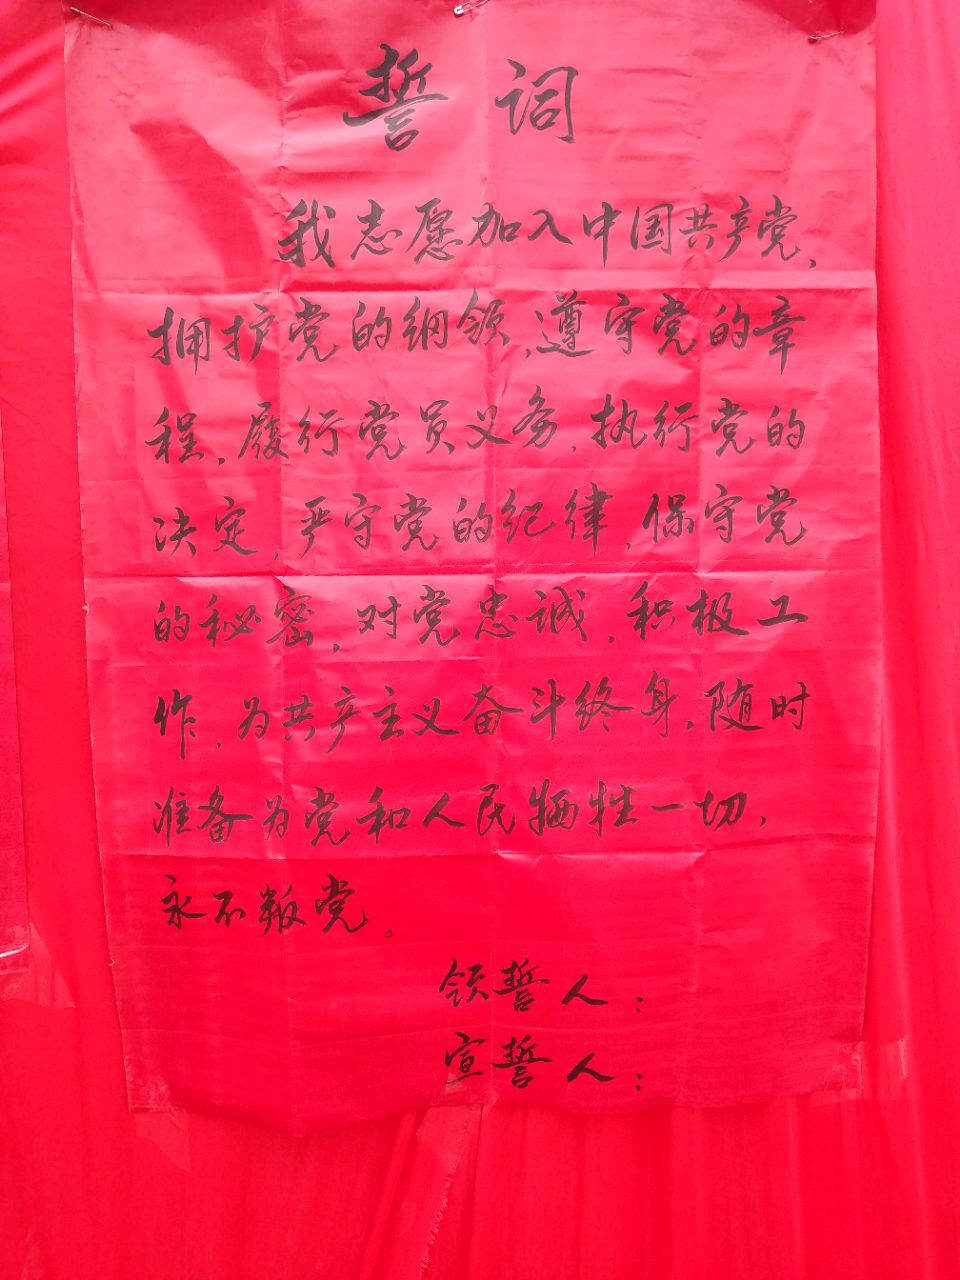 誓词
我志愿加入中国共产党,
拥护党的纲领,遵守党的章
程,履行党员义务,执行党的
决定,严守党的纪律,保守党
的秘密,对党忠诚,积极工
作,为共产主义奋斗终身,随时
准备为党和人民牺牲一切,
永不叛党。
领誓人:
宣誓人: